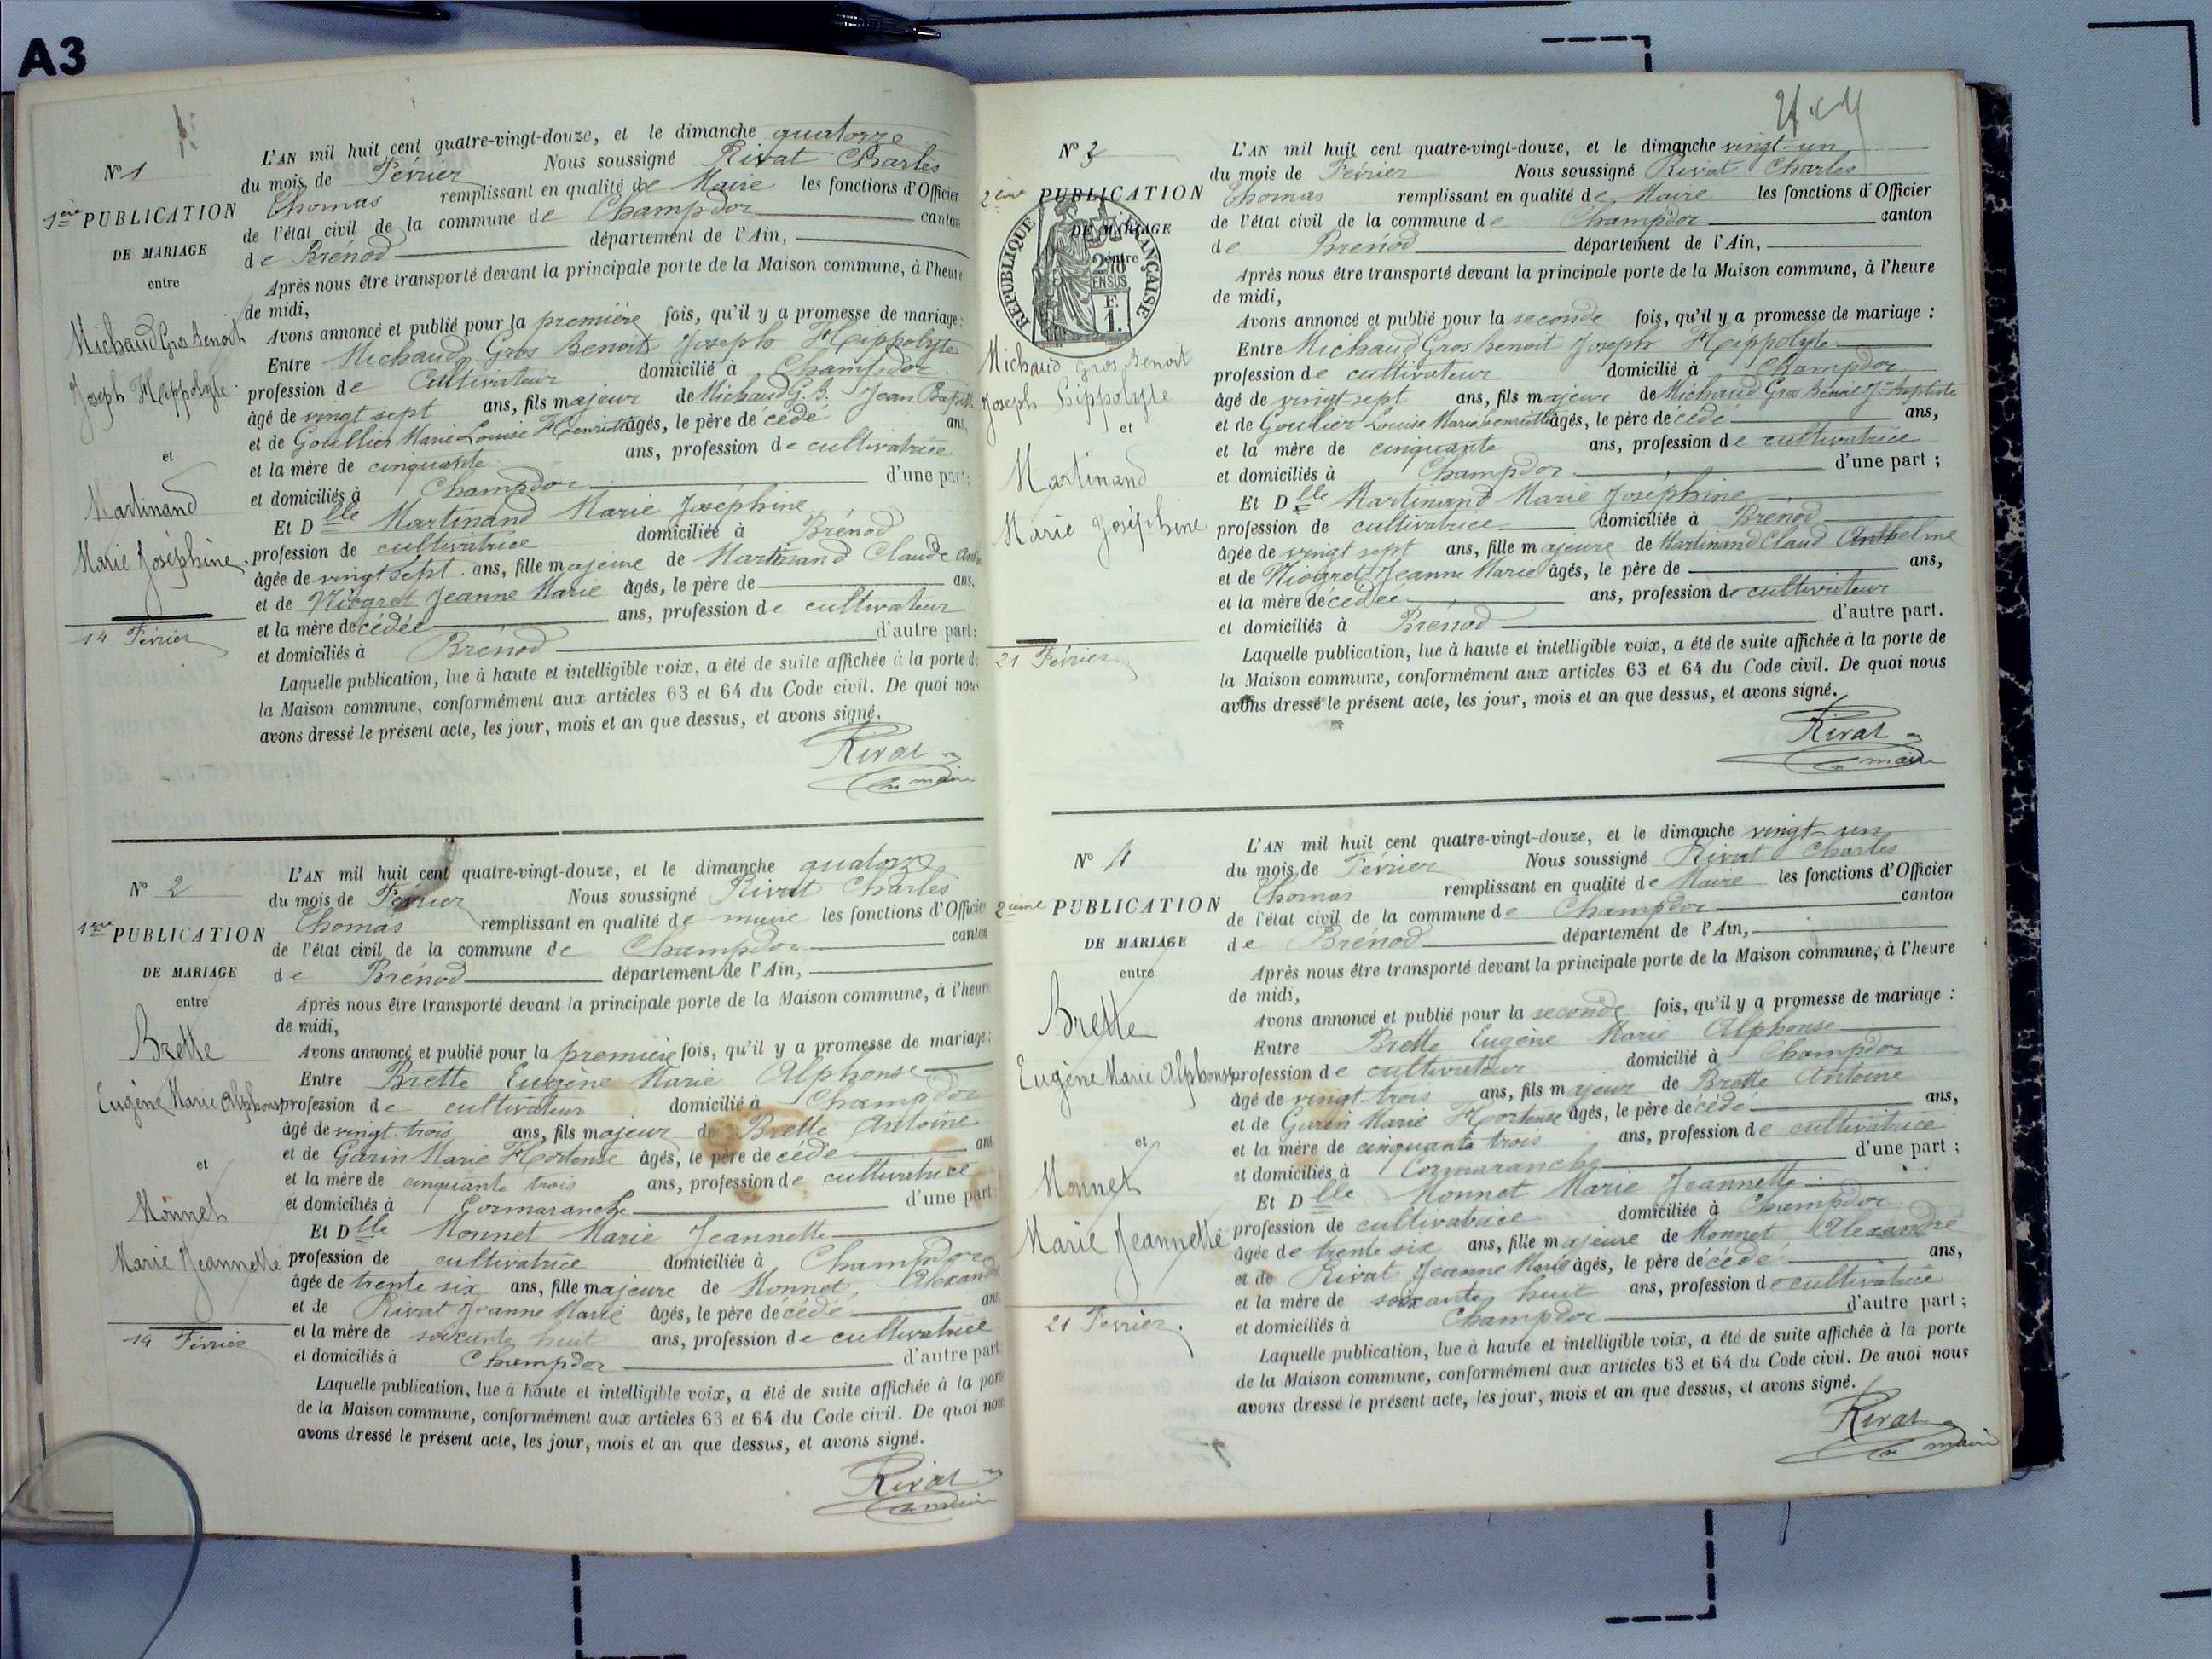 A3
N° 1
1ère PUBLICATION
DE MARIAGE
entre
Michaud Gros Benoit
Joseph Hippolyte
et
Martinand
Marie Joséphine
14 Février
L'AN mil huit cent quatre-vingt-douze, et le dimanche quatorze
du mois de Février Nous soussigné Rivat Charles
Thomas remplissant en qualité de Maire les fonctions d'Officier
de l'état civil de la commune de Champdor canton
de Brénod département de l'Ain,
Après nous être transporté devant la principale porte de la Maison commune, à l'heure
de midi,
Avons annoncé et publié pour la première fois, qu'il y a promesse de mariage:
Entre Michaud Gros Benoit Joseph Hippolyte
profession de Cultivateur domicilié à Champdor
âgé de vingt sept ans, fils majeur de Michaud G. B. Jean Bapti
et de Goullier Marie Louise Henriette âgés, le père décédé ans,
et la mère de cinquante ans, profession de cultivatrice
et domiciliés à Champdor d'une part;
Et Dlle Martinand Marie Joséphine
profession de cultivatrice domiciliée à Brénod
âgée de vingt sept ans, fille majeure de Martinand Claude
et de Niogret Jeanne Marie âgés, le père de ans,
et la mère décédée ans, profession de cultivateur
et domiciliés à Brénod d'autre part;
Laquelle publication, lue à haute et intelligible voix, a été de suite affichée à la porte de
la Maison commune, conformément aux articles 63 et 64 du Code civil. De quoi nous
avons dressé le présent acte, les jour, mois et an que dessus, et avons signé.
Rivat
maire
N° 2
1ère PUBLICATION
DE MARIAGE
entre
Brette
Eugène Marie Alphonse
et
Monnet
Marie Jeannette
14 Février
L'AN mil huit cent quatre-vingt-douze, et le dimanche quatorze
du mois de Février Nous soussigné Rivat Charles
Thomas remplissant en qualité de maire les fonctions d'Officier
de l'état civil de la commune de Champdor canton
de Brénod département de l'Ain,
Après nous être transporté devant la principale porte de la Maison commune, à l'heure
de midi,
Avons annoncé et publié pour la première fois, qu'il y a promesse de mariage:
Entre Brette Eugène Marie Alphonse
profession de cultivateur domicilié à Champdor
âgé de vingt-trois ans, fils majeur de Brette Antoine
et de Garin Marie Hortense âgés, le père décédé ans
et la mère de cinquante trois ans, profession de cultivatrice
et domiciliés à Cormaranche d'une part
Et Dlle Monnet Marie Jeannette
profession de cultivatrice domiciliée à Champdor
âgée de trente six ans, fille majeure de Monnet Alexandre
et de Rivat Jeanne Marie âgés, le père décédé ans
et la mère de soixante huit ans, profession de cultivatrice
et domiciliés à Champdor d'autre part
Laquelle publication, lue à haute et intelligible voix, a été de suite affichée à la porte
de la Maison commune, conformément aux articles 63 et 64 du Code civil. De quoi nous
avons dressé le présent acte, les jour, mois et an que dessus, et avons signé.
Rivat
maire
N° 3
2ème PUBLICATION
DE MARIAGE
entre
RÉPUBLIQUE FRANÇAISE
EN SUS
F.
1.
Michaud Gros Benoit
Joseph Hippolyte
et
Martinand
Marie Joséphine
21 Février
L'AN mil huit cent quatre-vingt-douze, et le dimanche vingt-un
du mois de Février Nous soussigné Rivat Charles
Thomas remplissant en qualité de Maire les fonctions d'Officier
de l'état civil de la commune de Champdor canton
de Brénod département de l'Ain,
Après nous être transporté devant la principale porte de la Maison commune, à l'heure
de midi,
Avons annoncé et publié pour la seconde fois, qu'il y a promesse de mariage :
Entre Michaud Gros Benoit Joseph Hippolyte
profession de cultivateur domicilié à Champdor
âgé de vingt-sept ans, fils majeur de Michaud Gros Benoit Jn Baptiste
et de Goullier Louise Marie henriette âgés, le père décédé ans,
et la mère de cinquante ans, profession de cultivatrice
et domiciliés à Champdor d'une part ;
Et Dlle Martinand Marie Joséphine
profession de cultivatrice domiciliée à Brénod
âgée de vingt sept ans, fille majeure de Martinand Claud Anthelme
et de Niogret Jeanne Marie âgés, le père de ans,
et la mère décédée ans, profession de cultivateur
et domiciliés à Brénod d'autre part.
Laquelle publication, lue à haute et intelligible voix, a été de suite affichée à la porte de
la Maison commune, conformément aux articles 63 et 64 du Code civil. De quoi nous
avons dressé le présent acte, les jour, mois et an que dessus, et avons signé.
Rivat
maire
N° 4
2ème PUBLICATION
DE MARIAGE
entre
Brette
Eugène Marie Alphonse
et
Monnet
Marie Jeannette
21 Février.
L'AN mil huit cent quatre-vingt-douze, et le dimanche vingt-un
du mois de Février Nous soussigné Rivat Charles
Thomas remplissant en qualité de Maire les fonctions d'Officier
de l'état civil de la commune de Champdor canton
de Brénod département de l'Ain,
Après nous être transporté devant la principale porte de la Maison commune, à l'heure
de midi,
Avons annoncé et publié pour la seconde fois, qu'il y a promesse de mariage :
Entre Brette Eugène Marie Alphonse
profession de cultivateur domicilié à Champdor
âgé de vingt-trois ans, fils majeur de Brette Antoine
et de Garin Marie Hortense âgés, le père décédé ans,
et la mère de cinquante trois ans, profession de cultivatrice
et domiciliés à Cormaranche d'une part ;
Et Dlle Monnet Marie Jeannette
profession de cultivatrice domiciliée à Champdor
âgée de trente six ans, fille majeure de Monnet Alexandre
et de Rivat Jeanne Marie âgés, le père décédé ans,
et la mère de soixante huit ans, profession de cultivatrice
et domiciliés à Champdor d'autre part ;
Laquelle publication, lue à haute et intelligible voix, a été de suite affichée à la porte
de la Maison commune, conformément aux articles 63 et 64 du Code civil. De quoi nous
avons dressé le présent acte, les jour, mois et an que dessus, et avons signé.
Rivat
maire